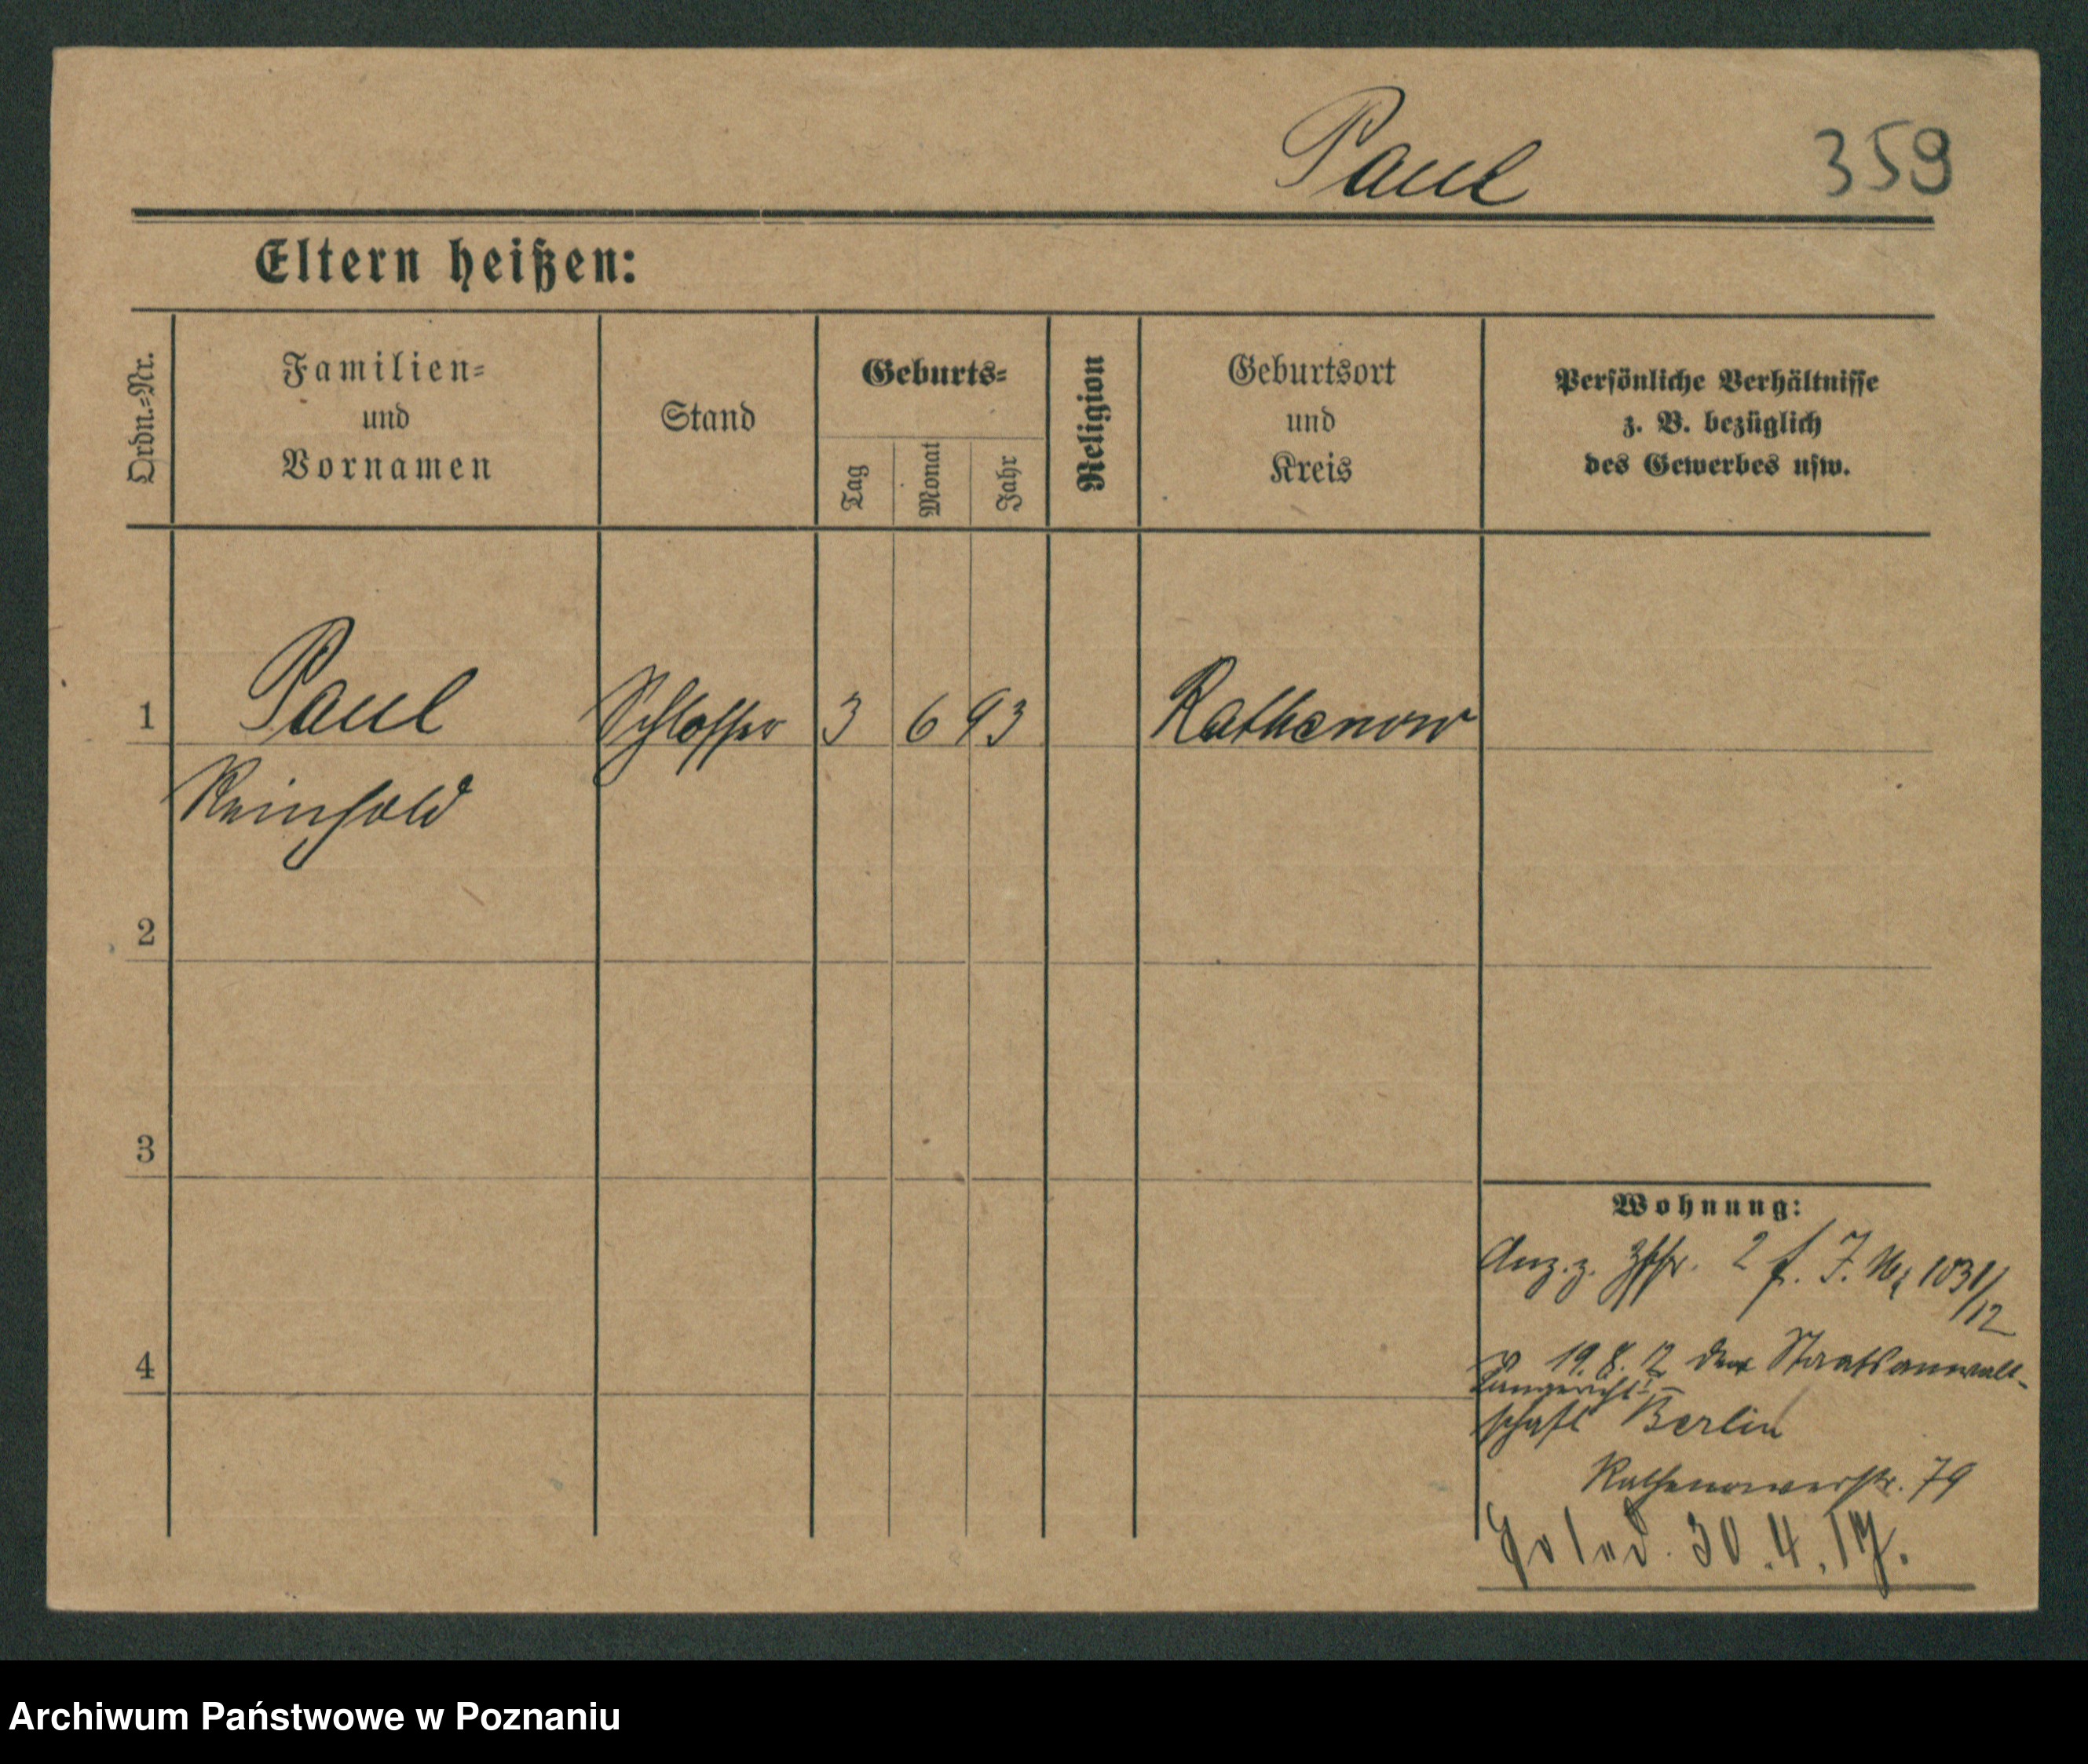 Paul 359
Eltern heißen:
Ordn.-Nr.
Familien-
und
Vornamen
Stand
Geburts-
Tag
Monat
Jahr
Religion
Geburtsort
und
Kreis
Persönliche Verhältnisse
z. B. bezüglich
des Gewerbes usw.
1 Paul Schlosser 3 6 93 Rathenow
Reinhold
2
3
4
Wohnung:
Anz. z. 2 f. J. N. 1031/12
19.8.12 der Staatsanwalt-
schaft Berlin
Rathenowerstr. 79
30.4.17.
Archiwum Państwowe w Poznaniu